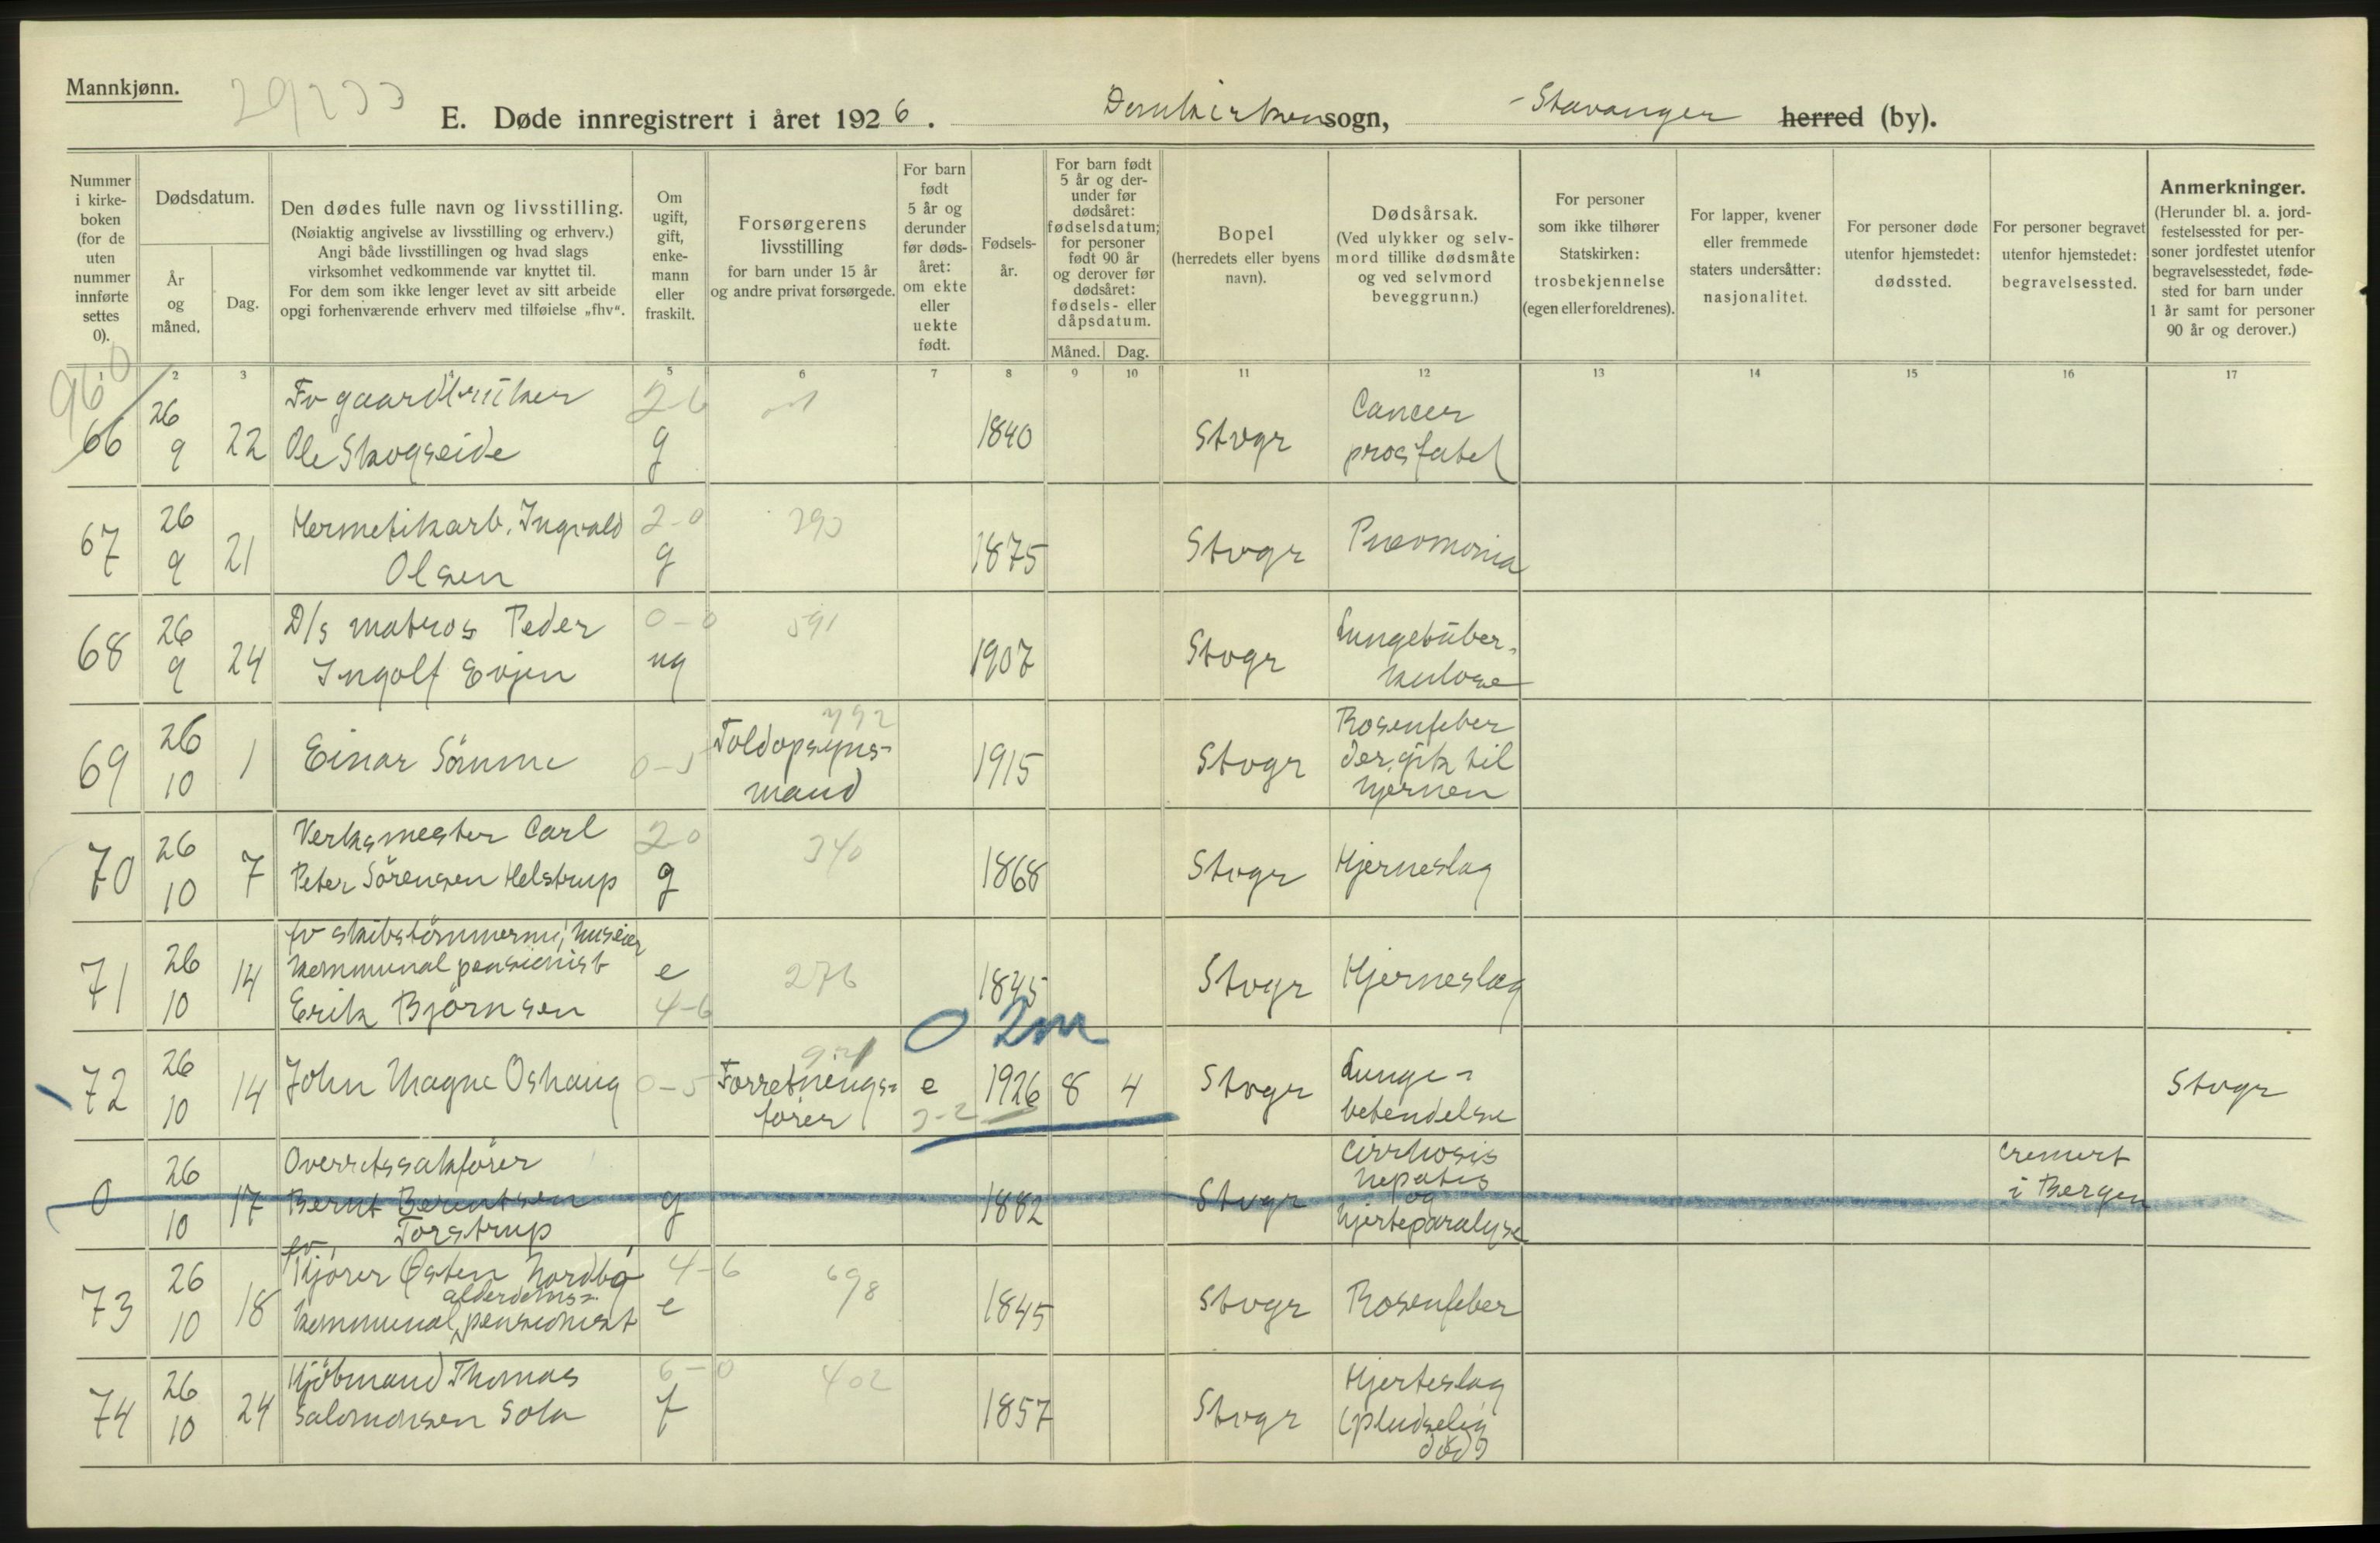 Mannkjønn.
29233
E. Døde innregistrert i året 1926. Domkirken sogn, - Stavanger herred (by).
Nummer i kirke- boken (for de uten nummer innførte settes 0).
Dødsdatum.
År og måned.
Dag.
Den dødes fulle navn og livsstilling.
(Nøiaktig angivelse av livsstilling og erhverv.)
Angi både livsstillingen og hvad slags
virksomhet vedkommende var knyttet til.
For dem som ikke lenger levet av sitt arbeide
opgi forhenværende erhverv med tilføielse „fhv“.
Om ugift, gift, enke- mann eller fraskilt.
Forsørgerens
livsstilling
for barn under 15 år
og andre privat forsørgede.
For barn født 5 år og derunder før døds- året: om ekte eller uekte født.
Fødsels- år.
For barn født 5 år og der- under før dødsåret: fødselsdatum; for personer født 90 år og derover før dødsåret: fødsels- eller dåpsdatum.
Måned. Dag.
Bopel
(herredets eller byens navn).
Dødsårsak.
(Ved ulykker og selv- mord tillike dødsmåte og ved selvmord beveggrunn.)
For personer som ikke tilhører Statskirken: trosbekjennelse (egen eller foreldrenes).
For lapper, kvener eller fremmede staters undersåtter: nasjonalitet.
For personer døde utenfor hjemstedet: dødssted.
For personer begravet utenfor hjemstedet: begravelsessted.
Anmerkninger.
(Herunder bl. a. jord- festelsessted for per- soner jordfestet utenfor begravelsesstedet, føde- sted for barn under 1 år samt for personer 90 år og derover.)
1 2 3 4 5 6 7 8 9 10 11 12 13 14 15 16 17
960
66 26 9 22 Fv gaardbruker 2-6
Ole Skogseide g 1840 Stvgr Cancer
prostatae
67 26 9 21 Hermetikarb. Ingvald 2-0 293
Olsen g 1875 Stvgr Pneomonia
68 26 9 24 D/s matros Peder 0-0 591
Ingolf Evjen ug 1907 Stvgr Lungetuber-
kulose
69 26 10 1 Einar Sømme 0-5 792
Toldopsyns-
mand 1915 Stvgr Rosenfeber
der gik til
hjernen
70 26 10 7 Verksmester Carl 2-0 340
Peter Sörensen Helstrup g 1868 Stvgr Hjerneslag
71 26 10 14 fv skibstömmerm., huseier
kommunal pensionist e 276
Erik Björnsen 4-6 1845 Stvgr Hjerneslag
0 2m
72 26 10 14 John Magne Oshaug 0-5 921
Forretnings-
fører e 3-2 1926 8 4 Stvgr Lunge-
betendelse Stvgr
0 26 10 17 Overretssakfører
Bernt Berentsen
Torstrup g 1882 Stvgr Cirrhosis
hepatis
og
hjerteparalyse cremert
i Bergen
73 26 10 18 fv.
Kjører Østen Nordbø 4-6 698
alderdoms-
kommunal pensionist e 1845 Stvgr Rosenfeber
74 26 10 24 Kjöbmand Thomas 6-0 402
Salomonsen Sola f 1857 Stvgr Hjerteslag
(pludselig
død)